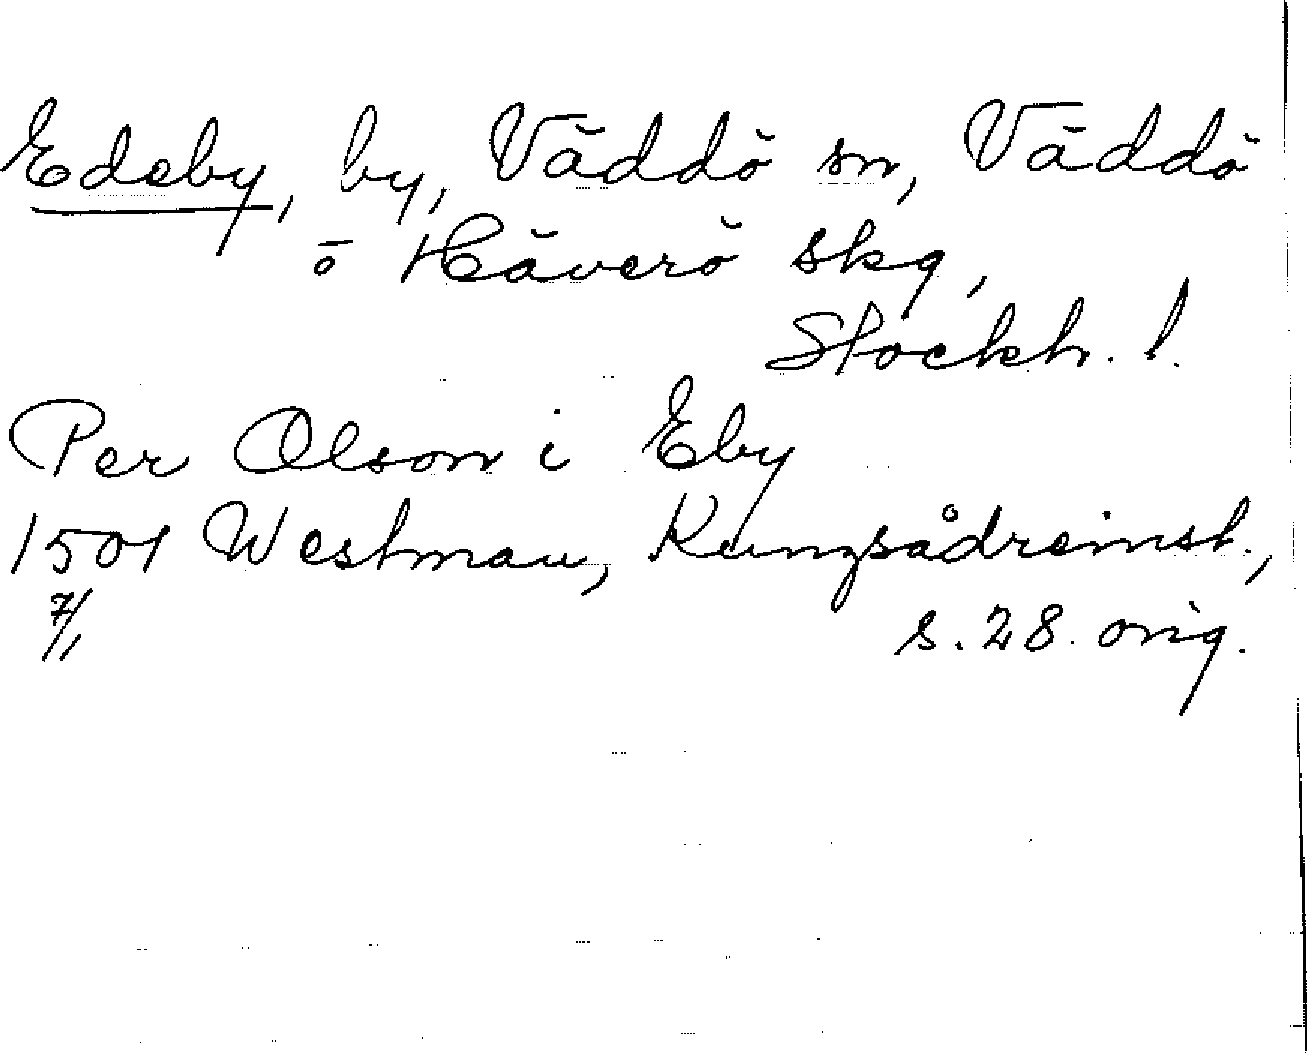 Edeby, by, Väddö sn, Väddö
o Häverö skg,
Stockh. l.
Per Olson i Eby
1501 Westman, Kungsådreinst.,
7/1 s. 28. orig.